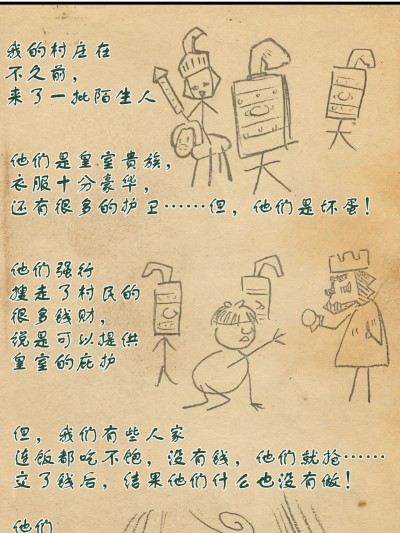 我的村庄在
不久前，
来了一批陌生人
他们是皇室贵族，
衣服十分豪华，
还有很多的护卫……但，他们是坏蛋！
他们强行
搜走了村民的
很多钱财，
说是可以提供
皇室的庇护
但，我们有些人家
连饭都吃不饱，没有钱，他们就抢……
交了钱后，结果他们什么也没有做！
他们